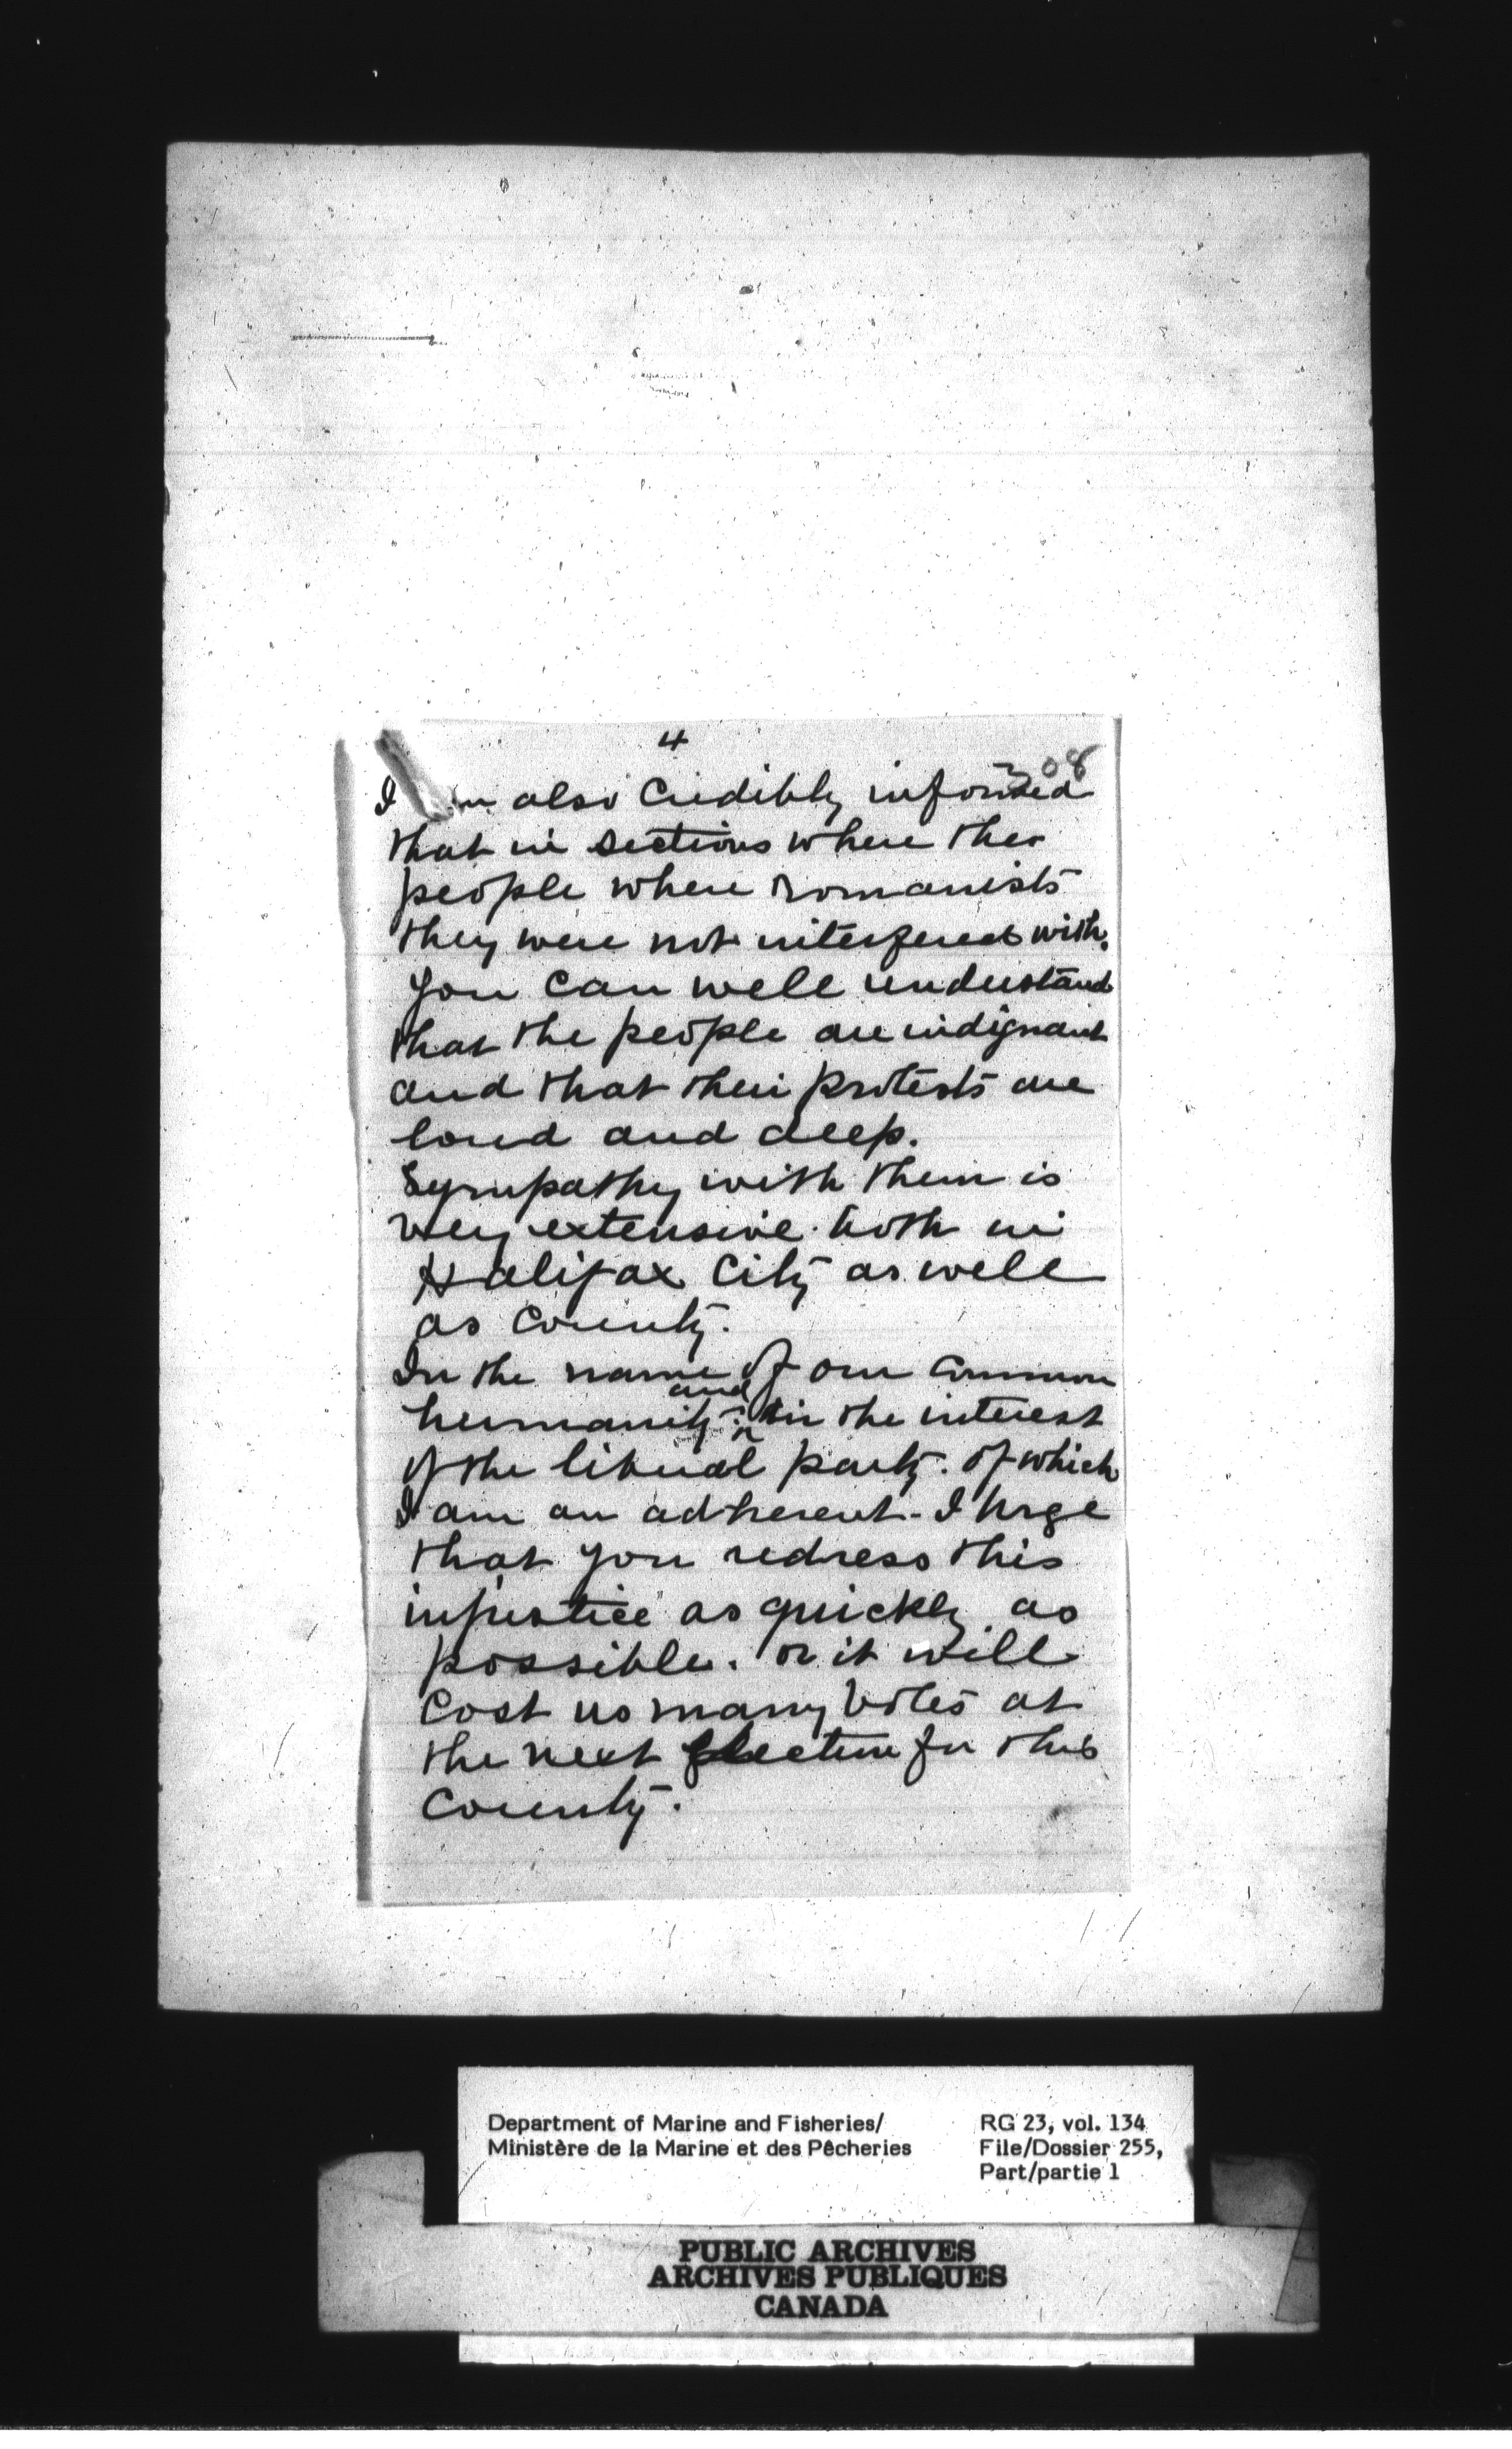 4
308
I am also Credibly informed
that in sections where the
people where Romanists
they were not interfered with.
You can well understand
that the people are indignant
and that their protests are
loud and deep.
Sympathy with them is
very extensive. both in
Halifax City as well
as County.
In the name of our Common
and
humanity in the interest
of the liberal party. of which
I am an adherent. I Urge
that you redress this
injustice as quickly as
possible. or it will
Cost us many Votes at
the next Election for this
County.
Department of Marine and Fisheries/ RG 23, vol. 134
Ministère de la Marine et des Pêcheries File/Dossier 255,
Part/partie 1
PUBLIC ARCHIVES
ARCHIVES PUBLIQUES
CANADA